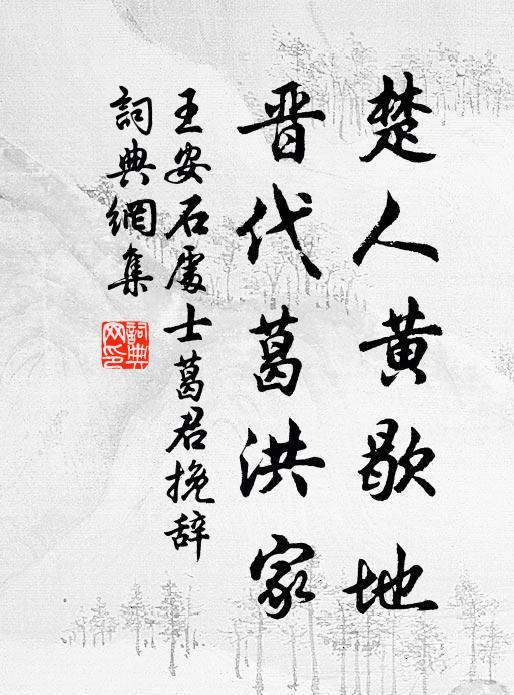 楚人黄歇地
晋代葛洪家
王安石處士葛君挽辞
詞典網集
詞典网印